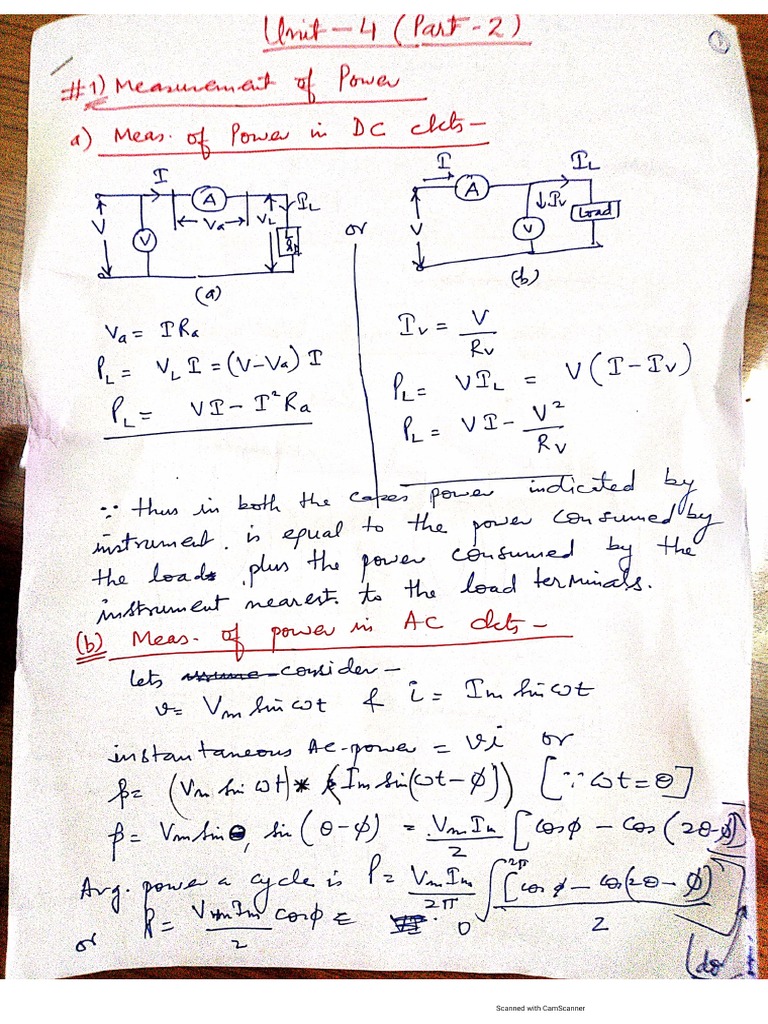 Unit-4 (Part-2)
1
#1) Measurement of Power
a) Meas. of Power in DC ckts-
I
A
V
V
Va
VL
IL
(a)
or
I
A
IL
V
V
Iv
Load
(b)
Va = IRa
PL = VL I = (V-Va) I
PL = VI - I²Ra
Iv = V/Rv
PL = VIL = V(I-Iv)
PL = VI - V²/Rv
∵ thus in both the cases power indicated by
instrument. is equal to the power consumed by
the load. plus the power consumed by the
instrument nearest. to the load terminals.
(b) Meas. of power in AC ckts-
lets assume consider-
v= Vm sin ωt & i = Im sin ωt
instantaneous Ac-power = vi or
p= (Vm sin ωt) * (Im sin(ωt-φ)) [∵ ωt = θ]
p= Vm sin θ, sin (θ-φ) = Vm Im/2 [cosφ - cos(2θ-φ)]
Avg. power a cycle is P = Vm Im/2π ∫0^2π [cosφ - cos(2θ-φ)]/2 (dθ
or P= Vm Im/2 cosφ =
Scanned with CamScanner